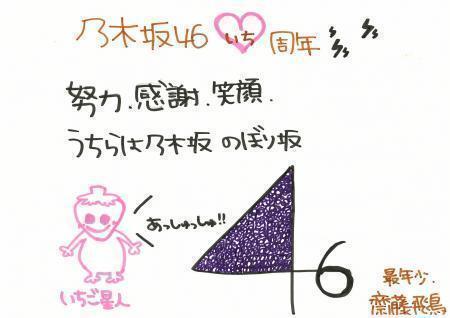 乃木坂46 いち 周年
努力、感謝、笑顔、
うちらは乃木坂 のぼり坂
あっしゅっしゅ!!
46
いちご星人
最年少、
齋藤飛鳥